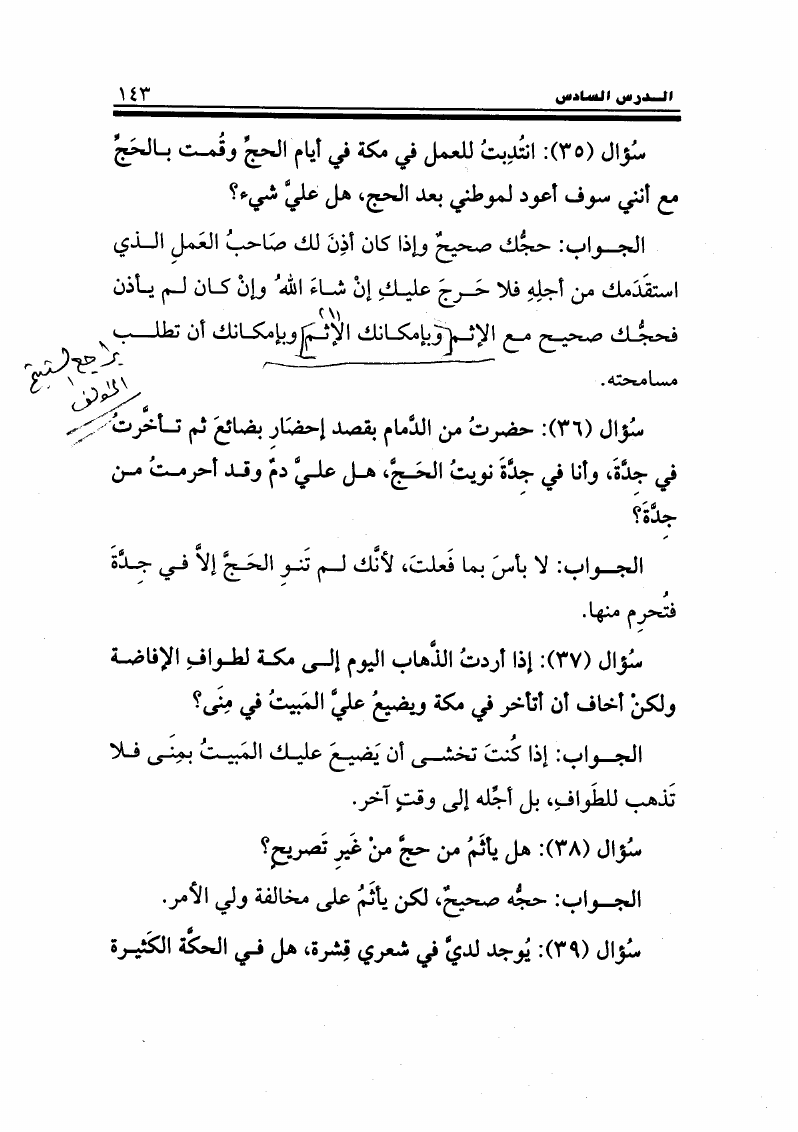 الـدرس السادس
١٤٣
سُؤال (٣٥): انتُدِبتُ للعمل في مكة في أيام الحجِّ وقُمـت بـالحَجِّ
مع أنني سوف أعود لموطني بعد الحج، هل عليَّ شيء؟
الجـواب: حجُّك صحيحٌ وإذا كان أذِنَ لك صَاحبُ العَملِ الـذي
استقدَمك من أجلِهِ فلا حَـرجَ عليـكِ إنْ شـاءَ اللهُ وإنْ كـان لـم يـأذن
فحجُّـك صـحيح مـع الإثـم وبإمكـانك الإثـم وبإمكـانك أن تطلـب
(١)
يراجع لشيخ
المؤلف
مسامحته.
سُؤال (٣٦): حضرتُ من الدَّمام بقصد إحضَارِ بضائعَ ثم تـأخَّرتُ
في جِدَّةَ، وأنا في جِدَّةَ نويتُ الحَـجَّ، هـل علـيَّ دمٌ وقـد أحرمـتُ مـن
جِدَّةَ؟
الجـواب: لا بأسَ بما فَعلتَ، لأنَّك لـم تَنـوِ الحَـجَّ إلاَّ فـي جِـدَّةَ
فتُحرِم منها.
سُؤال (٣٧): إذا أردتُ الذَّهاب اليوم إلـى مكـة لطـوافِ الإفاضـة
ولكنْ أخاف أن أتأخر في مكة ويضيعُ عليَّ المَبيتُ في مِنَى؟
الجـواب: إذا كُنتَ تخشـى أن يَضيـعَ عليـك المَبيـتُ بمِنَـى فـلا
تَذهب للطَوافِ، بل أجِّله إلى وقتٍ آخر.
سُؤال (٣٨): هل يأثَمُ من حجَّ منْ غَيرِ تَصريحٍ؟
الجـواب: حجُّه صحيحٌ، لكن يأثَمُ على مخالفة ولي الأمر.
سُؤال (٣٩): يُوجد لديَّ في شعري قِشرة، هل فـي الحكَّة الكَثيـرة